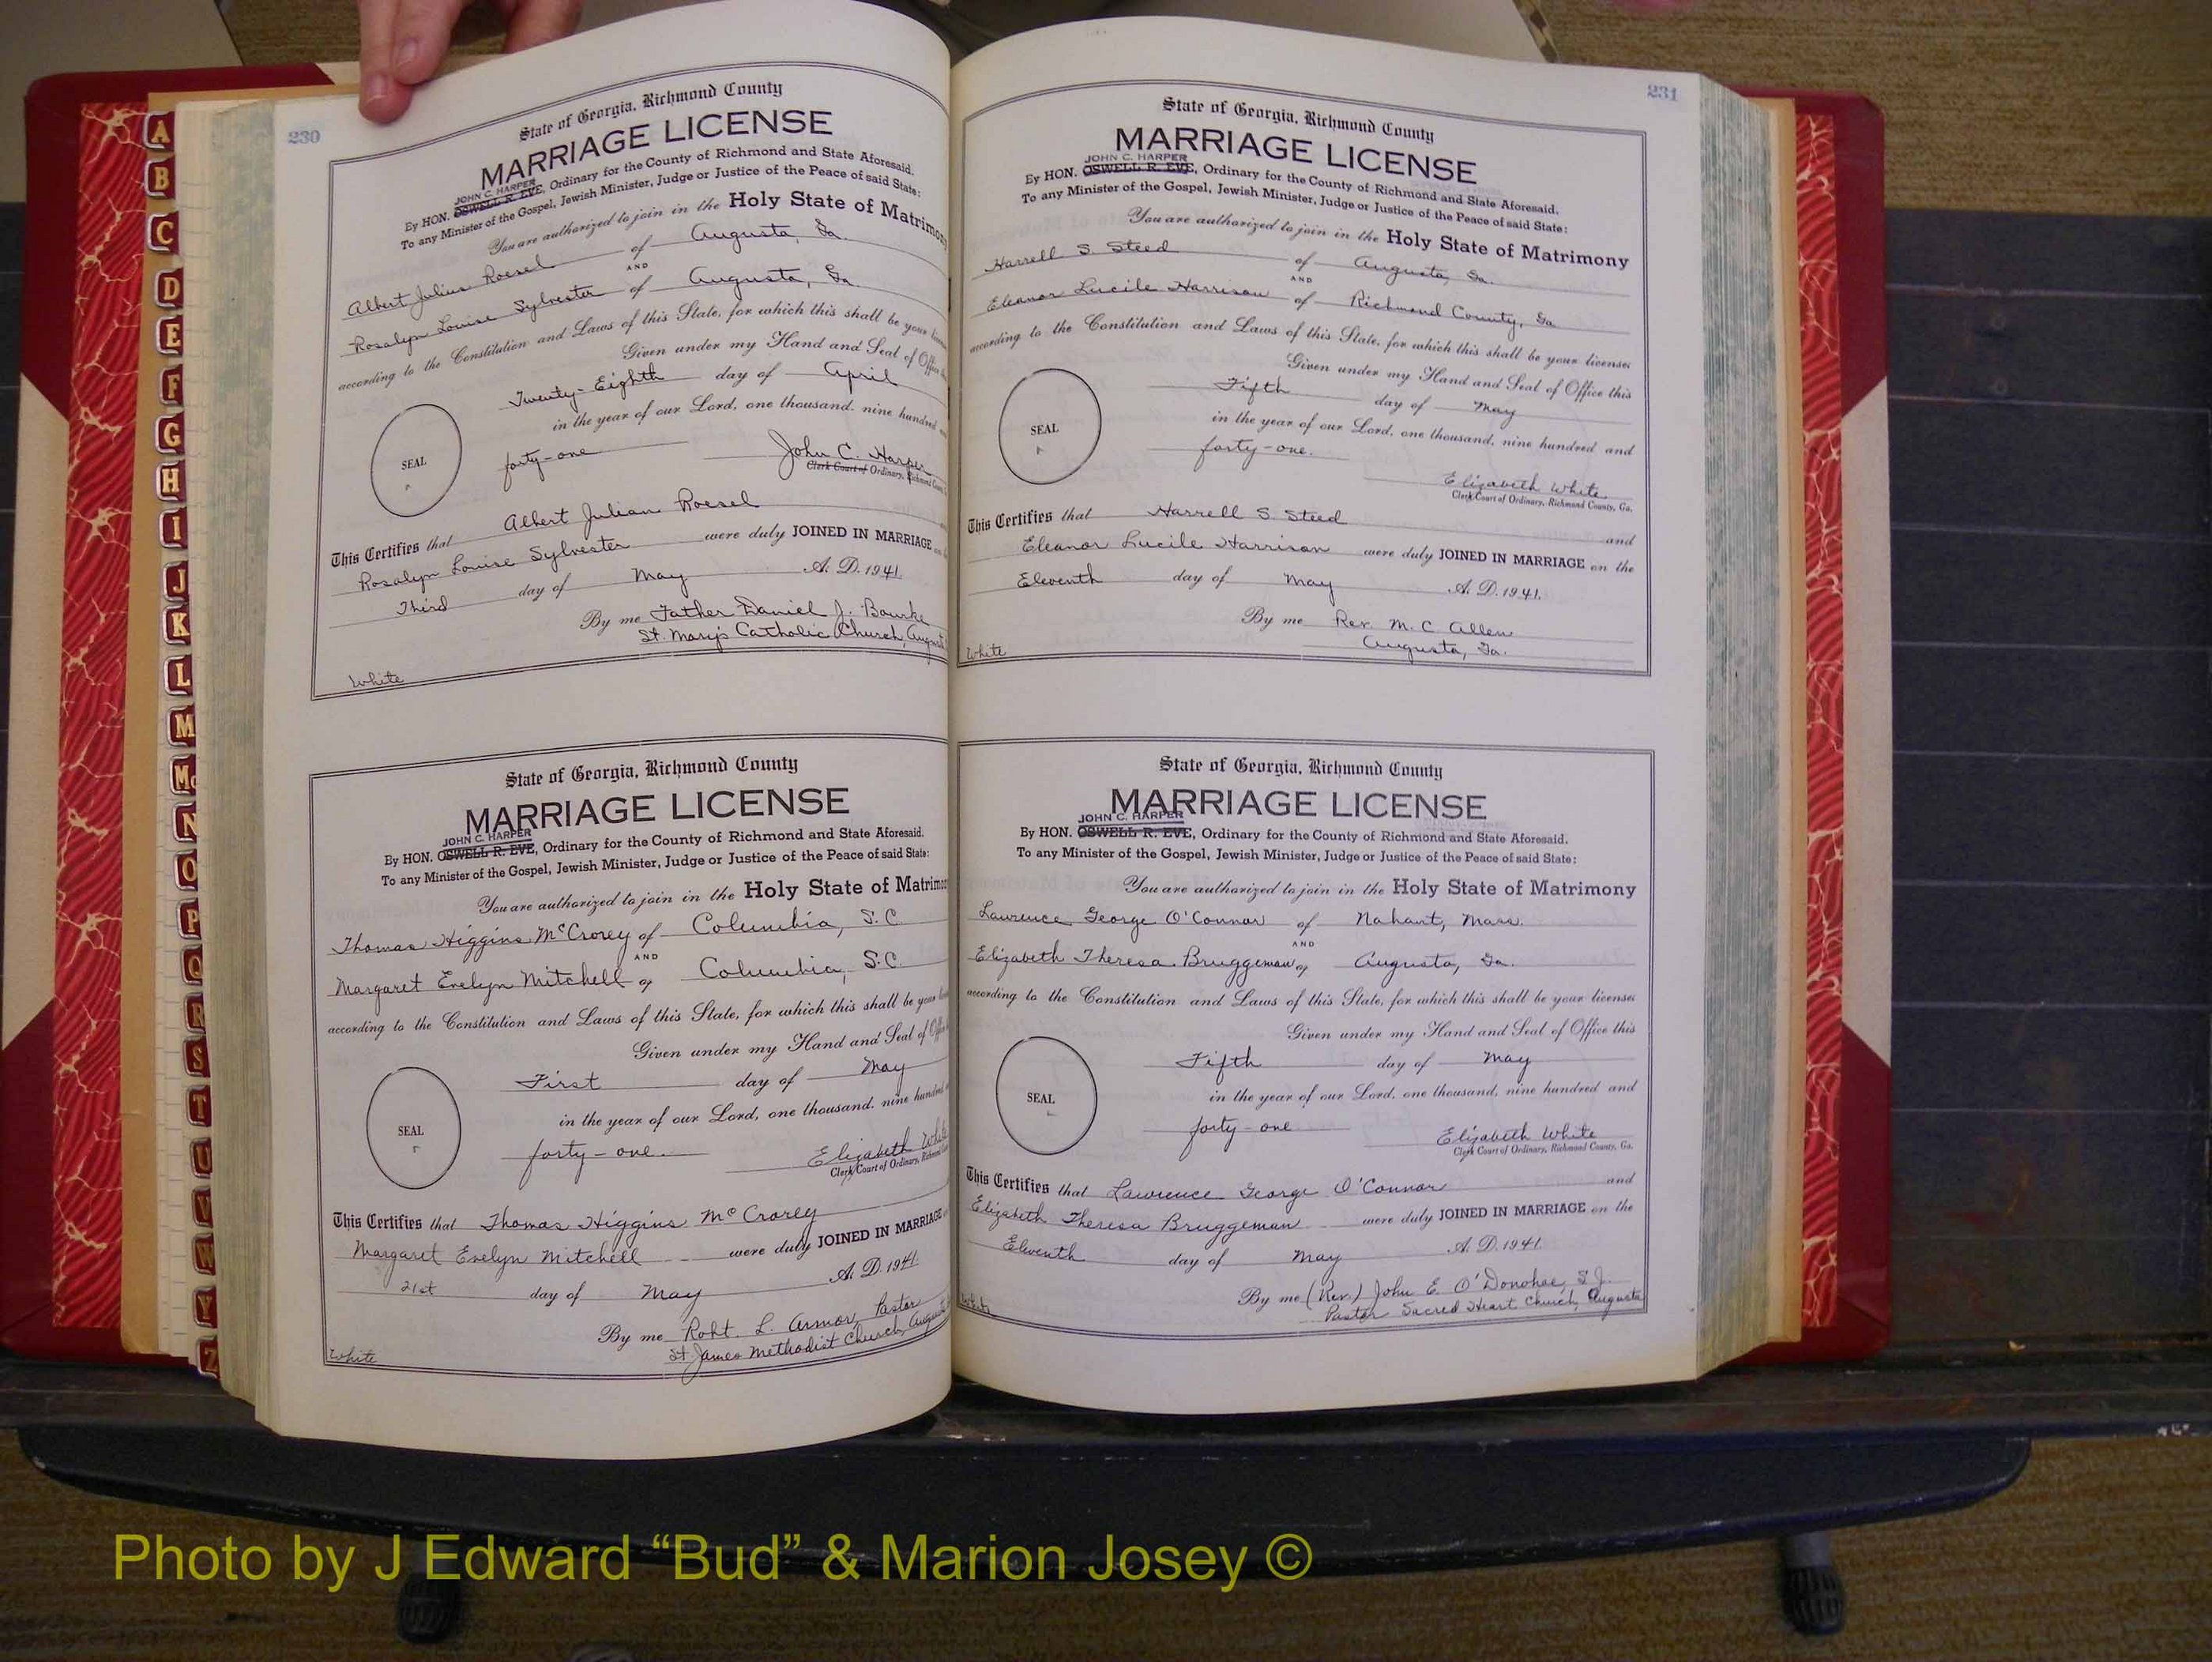 230
State of Georgia, Richmond County
MARRIAGE LICENSE
JOHN C. HARPER
By HON. OSWELL R. EVE, Ordinary for the County of Richmond and State Aforesaid.
To any Minister of the Gospel, Jewish Minister, Judge or Justice of the Peace of said State:
You are authorized to join in the Holy State of Matrimony
Albert Julius Roesel of Augusta, Ga.
AND
Rosalyn Louise Sylvester of Augusta, Ga.
according to the Constitution and Laws of this State, for which this shall be your
Given under my Hand and Seal of Office
Twenty-Eighth day of April
in the year of our Lord, one thousand, nine hundred
SEAL
forty-one
John C. Harper
Clerk Court of Ordinary, Richmond County
This Certifies that Albert Julian Roesel
Rosalyn Louise Sylvester were duly JOINED IN MARRIAGE
Third day of May A. D. 1941
By me Father Daniel J. Bourke
St. Mary's Catholic Church,
White
State of Georgia, Richmond County
MARRIAGE LICENSE
JOHN C. HARPER
By HON. OSWELL R. EVE, Ordinary for the County of Richmond and State Aforesaid.
To any Minister of the Gospel, Jewish Minister, Judge or Justice of the Peace of said State:
You are authorized to join in the Holy State of
Thomas Higgins McCrorey of Columbia, S.C.
AND
Margaret Evelyn Mitchell of Columbia, S.C.
according to the Constitution and Laws of this State, for which this shall be your
Given under my Hand and Seal of
First day of May
in the year of our Lord, one thousand, nine
SEAL
forty-one.
Elizabeth White
Clerk Court of Ordinary,
This Certifies that Thomas Higgins McCrorey
Margaret Evelyn Mitchell were duly JOINED IN MARRIAGE
21st day of May A. D. 1941
By me Robt. L. Armor, Pastor
St. James Methodist Church,
White
231
State of Georgia, Richmond County
MARRIAGE LICENSE
JOHN C. HARPER
By HON. OSWELL R. EVE, Ordinary for the County of Richmond and State Aforesaid.
To any Minister of the Gospel, Jewish Minister, Judge or Justice of the Peace of said State:
You are authorized to join in the Holy State of Matrimony
Harrell S. Steed of Augusta, Ga.
AND
Eleanor Lucile Harrison of Richmond County, Ga.
according to the Constitution and Laws of this State, for which this shall be your licenses
Given under my Hand and Seal of Office this
Fifth day of May
in the year of our Lord, one thousand, nine hundred and
SEAL
forty-one.
Elizabeth White
Clerk Court of Ordinary, Richmond County, Ga.
This Certifies that Harrell S. Steed and
Eleanor Lucile Harrison were duly JOINED IN MARRIAGE on the
Eleventh day of May A. D. 1941.
By me Rev. M. C. Allen
Augusta, Ga.
White
State of Georgia, Richmond County
MARRIAGE LICENSE
JOHN C. HARPER
By HON. OSWELL R. EVE, Ordinary for the County of Richmond and State Aforesaid.
To any Minister of the Gospel, Jewish Minister, Judge or Justice of the Peace of said State:
You are authorized to join in the Holy State of Matrimony
Lawrence George O'Connor of Nahant, Mass.
AND
Elizabeth Theresa Bruggeman of Augusta, Ga.
according to the Constitution and Laws of this State, for which this shall be your licenses
Given under my Hand and Seal of Office this
Fifth day of May
in the year of our Lord, one thousand, nine hundred and
SEAL
forty-one
Elizabeth White
Clerk Court of Ordinary, Richmond County, Ga.
This Certifies that Lawrence George O'Connor and
Elizabeth Theresa Bruggeman were duly JOINED IN MARRIAGE on the
Eleventh day of May A. D. 1941.
By me (Rev.) John E. O'Donohoe, S.J.
Pastor Sacred Heart Church, Augusta
White
A
B
C
D
E
F
G
H
I
J
K
L
M
Mc
N
O
P
Q
R
S
T
U
V
W
Y
Z
Photo by J Edward “Bud” & Marion Josey ©